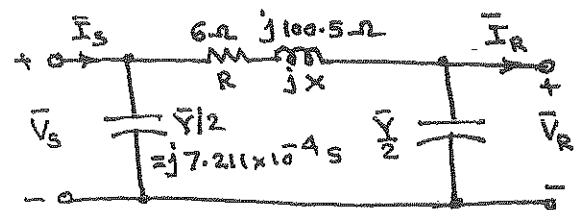 Ī_S 6Ω j100.5Ω Ī_R
+ R jX +
V̄_S Ȳ/2 Ȳ/2 V̄_R
=j7.211×10⁻⁴ S
- -